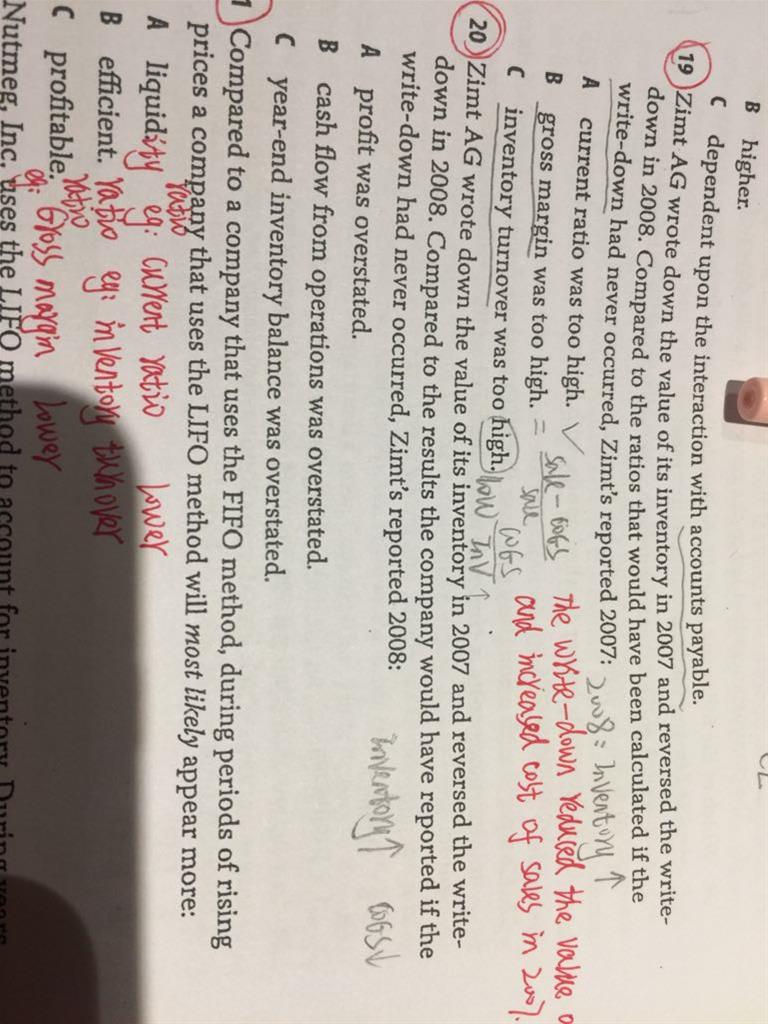 B higher.
C dependent upon the interaction with accounts payable.
19 Zimt AG wrote down the value of its inventory in 2007 and reversed the write-
down in 2008. Compared to the ratios that would have been calculated if the
write-down had never occurred, Zimt's reported 2007: 2008: Inventory ↑
A current ratio was too high. √
The write-down reduced the value o
B gross margin was too high. = sale - COGS
sale
and increased cost of sales in 2007.
C inventory turnover was too high. low COGS
INV ↑
20 Zimt AG wrote down the value of its inventory in 2007 and reversed the write-
down in 2008. Compared to the results the company would have reported if the
write-down had never occurred, Zimt's reported 2008:
A profit was overstated. Inventory↑ COGS↓
B cash flow from operations was overstated.
C year-end inventory balance was overstated.
1 Compared to a company that uses the FIFO method, during periods of rising
prices a company that uses the LIFO method will most likely appear more:
A liquidity ratio eg: current ratio lower
B efficient. ratio eg: inventory turnover
C profitable. ratio eg: Gross margin lower
Nutmeg, Inc. uses the LIFO method to account for inventory. During years